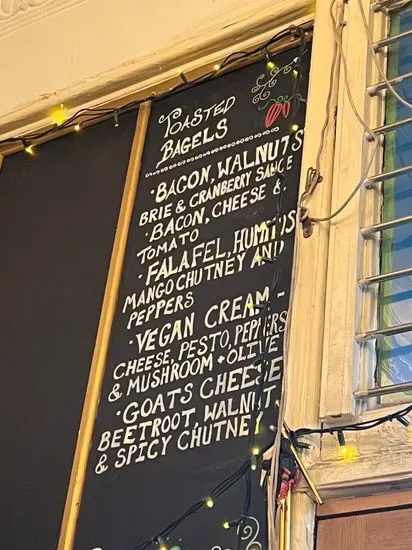 TOASTED
BAGELS
• BACON, WALNUTS
BRIE & CRANBERRY SAUCE
• BACON, CHEESE &
TOMATO
• FALAFEL, HUMMUS
MANGO CHUTNEY AND
PEPPERS
• VEGAN CREAM -
CHEESE, PESTO, PEPPERS
& MUSHROOM + OLIVE
• GOATS CHEESE
BEETROOT, WALNUT,
& SPICY CHUTNEY